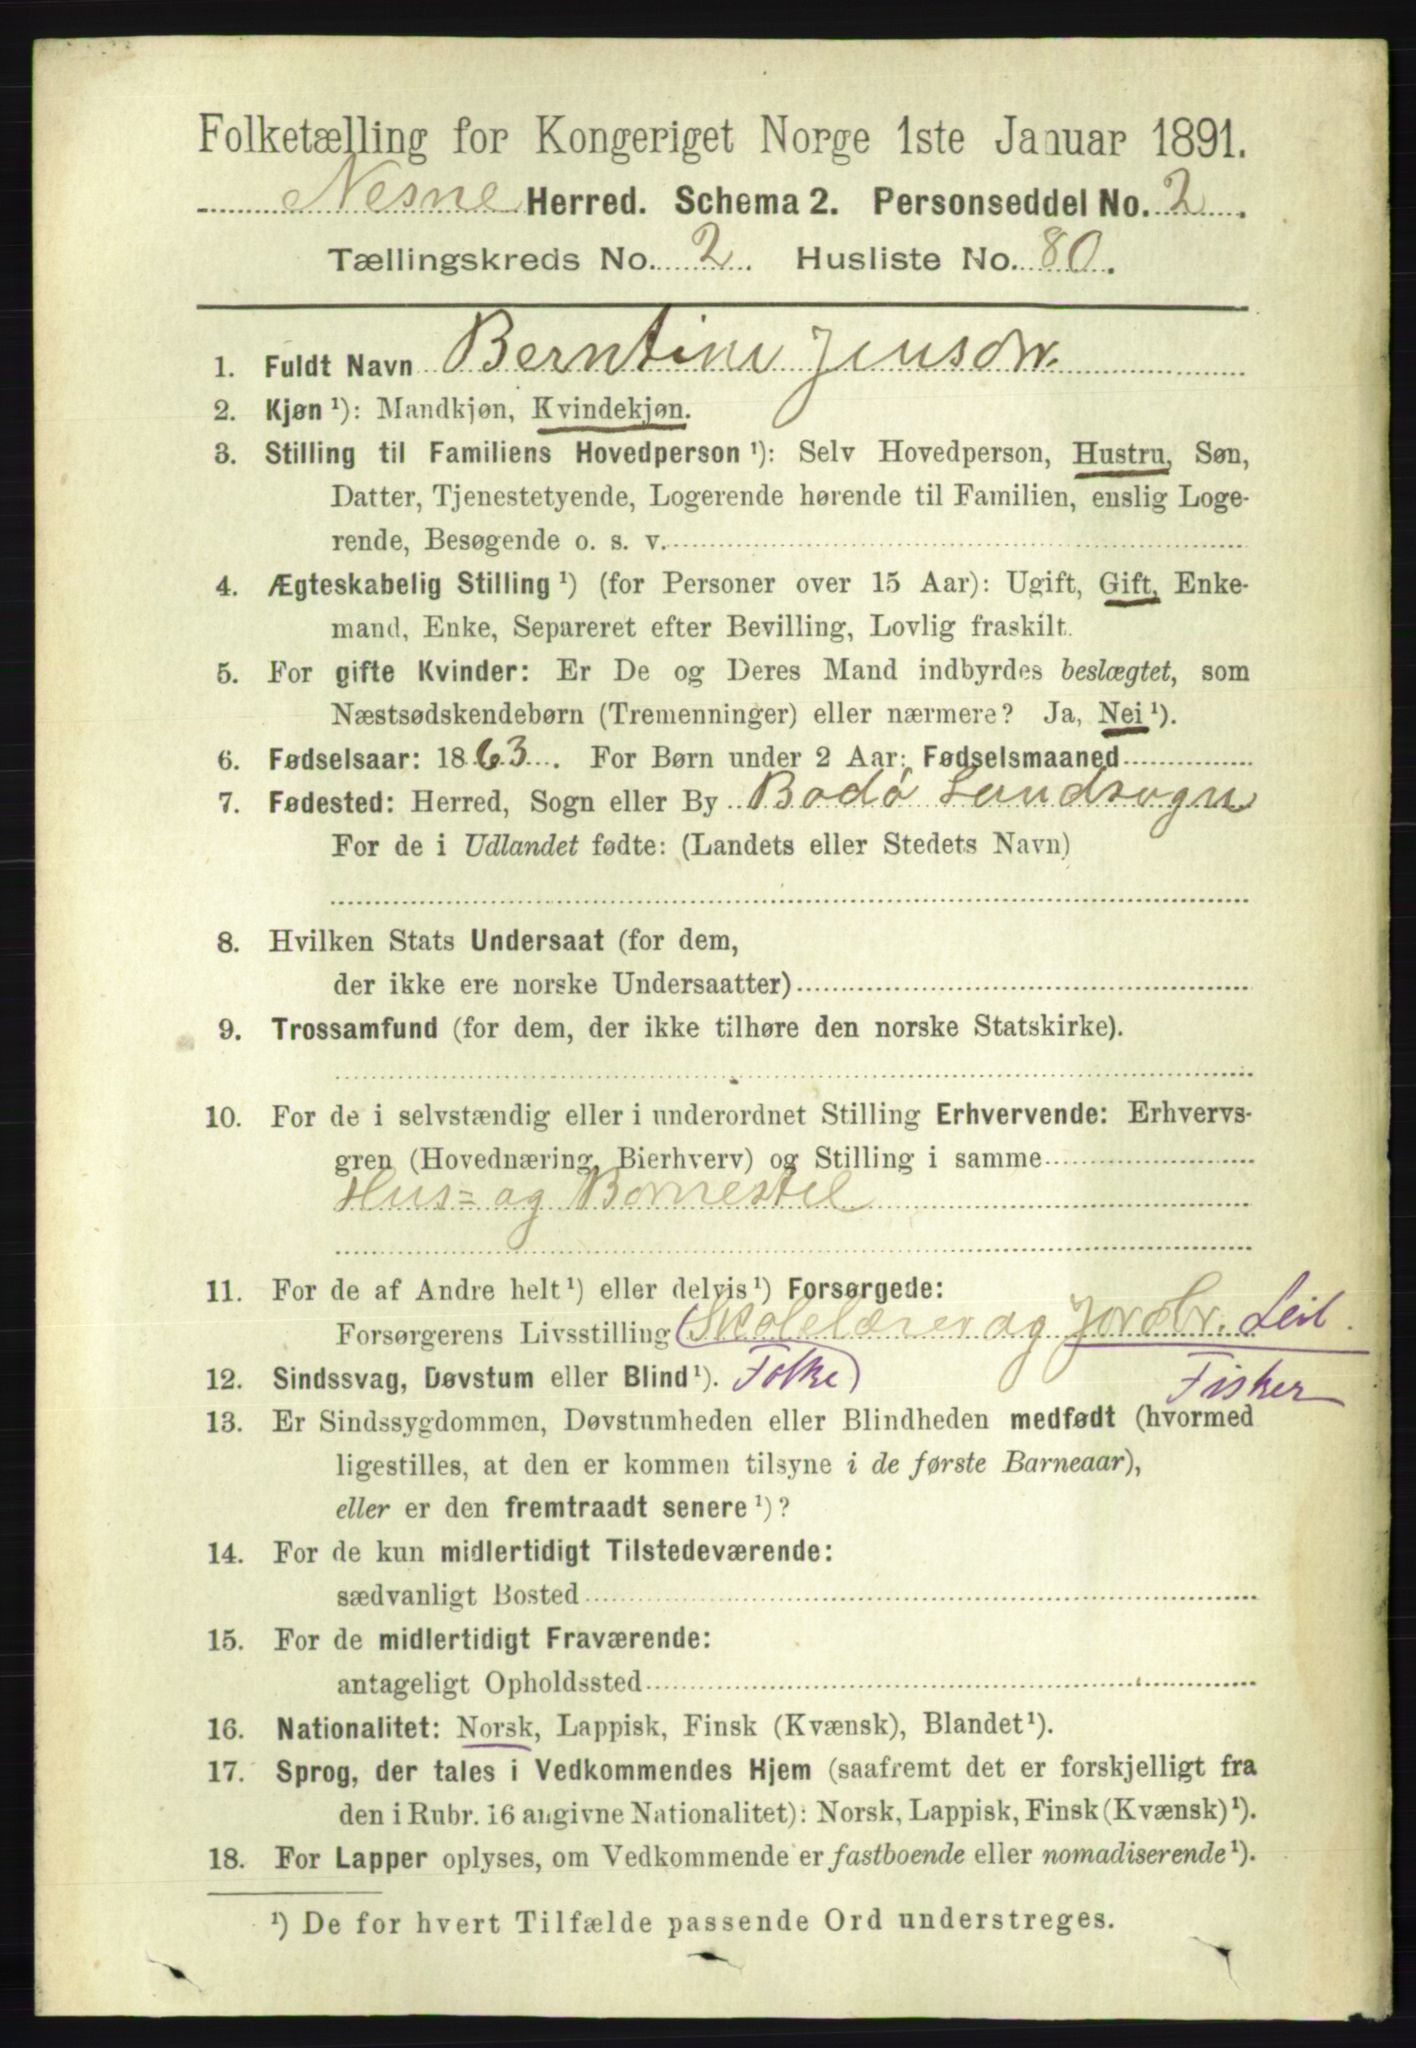 Folketælling for Kongeriget Norge 1ste Januar 1891.
Nesne Herred. Schema 2. Personseddel No. 2.
Tællingskreds No. 2. Husliste No. 80.
1. Fuldt Navn Berntine Jensen
2. Kjøn ¹): Mandkjøn, Kvindekjøn.
3. Stilling til Familiens Hovedperson ¹): Selv Hovedperson, Hustru, Søn,
Datter, Tjenestetyende, Logerende hørende til Familien, enslig Loge-
rende, Besøgende o. s. v.
4. Ægteskabelig Stilling ¹) (for Personer over 15 Aar): Ugift, Gift, Enke-
mand, Enke, Separeret efter Bevilling, Lovlig fraskilt.
5. For gifte Kvinder: Er De og Deres Mand indbyrdes beslægtet, som
Næstsødskendebørn (Tremenninger) eller nærmere? Ja, Nei ¹).
6. Fødselsaar: 1863. For Børn under 2 Aar: Fødselsmaaned
7. Fødested: Herred, Sogn eller By Bodø Landsogn
For de i Udlandet fødte: (Landets eller Stedets Navn)
8. Hvilken Stats Undersaat (for dem,
der ikke ere norske Undersaatter)
9. Trossamfund (for dem, der ikke tilhøre den norske Statskirke).
10. For de i selvstændig eller i underordnet Stilling Erhvervende: Erhvervs-
gren (Hovednæring, Bierhverv) og Stilling i samme
Hus- og Bornestel
11. For de af Andre helt ¹) eller delvis ¹) Forsørgede:
Forsørgerens Livsstilling (Skolelærer og Jordbr. Leil.
12. Sindssvag, Døvstum eller Blind ¹). Folke) Fisker
13. Er Sindssygdommen, Døvstumheden eller Blindheden medfødt (hvormed
ligestilles, at den er kommen tilsyne i de første Barneaar),
eller er den fremtraadt senere ¹)?
14. For de kun midlertidigt Tilstedeværende:
sædvanligt Bosted
15. For de midlertidigt Fraværende:
antageligt Opholdssted
16. Nationalitet: Norsk, Lappisk, Finsk (Kvænsk), Blandet ¹).
17. Sprog, der tales i Vedkommendes Hjem (saafremt det er forskjelligt fra
den i Rubr. 16 angivne Nationalitet): Norsk, Lappisk, Finsk (Kvænsk) ¹).
18. For Lapper oplyses, om Vedkommende er fastboende eller nomadiserende ¹).
¹) De for hvert Tilfælde passende Ord understreges.